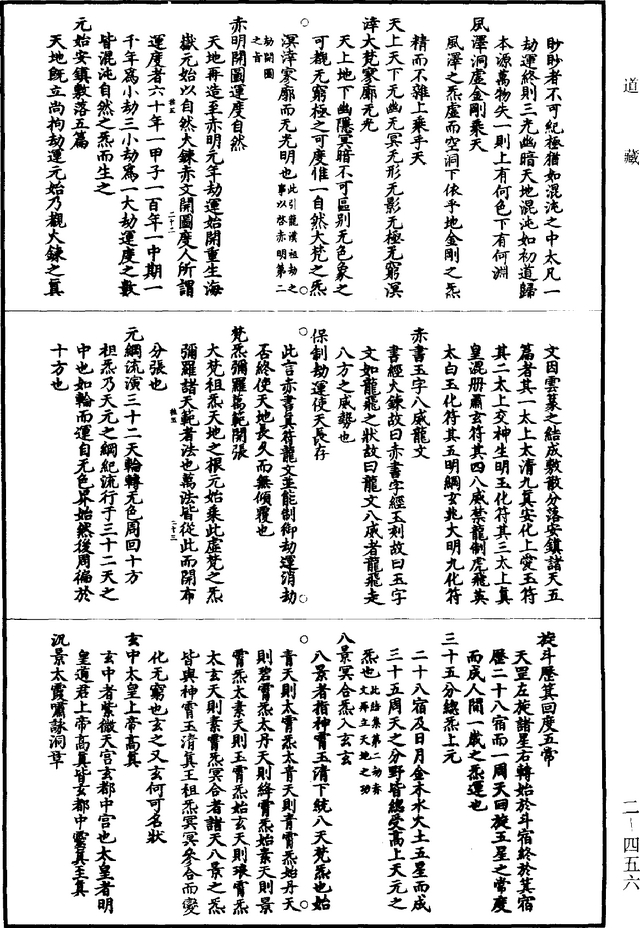 道藏
眇眇者不可紀極猶如混沌之中太凡一
劫運終則三光幽暗天地混沌如初道歸
本源萬物失一則上有何色下有何淵
風澤洞虛金剛乘天
風澤之炁虛而空洞下依乎地金剛之炁
精而不雜上乘乎天
天上天下无幽无冥无形无影无極无窮溟
涬大梵寥廓无光
天上地下幽隱冥暗不可區別无色象之
可觀无窮極之可度惟一自然大梵之炁
溟涬寥廓而无光明也此引龍漢祖劫之事以啓赤明第二
劫開圖之音
赤明開圖運度自然
天地再造至赤明元年劫運始開重生海
嶽元始以自然火鍊赤文開圖度人所謂
運度者六十年一甲子一百年一中期一
千年爲小劫三小劫爲一大劫運度之數
皆混沌自然之炁而生之
元始安鎮敷落五篇
天地既立尚拘劫運元始乃觀火鍊之真
文因雲篆之結成敷散分落安鎮諸天五
篇者其一太上太清九真安化上愛玉符
其二太上交神生明玉化符其三太上真
皇混册肅玄符其四八威禁龍制虎飛英
太白玉化符其五明綱玄兆大明九化符
赤書玉字八威龍文
書經火鍊故曰赤書字經玉刻故曰玉字
文如龍飛之狀故曰龍文八威者龍飛走
八方之威勢也
保制劫運使天長存
此言赤書真符龍文並能制御劫運消劫
否終使天地長久而無傾覆也
梵炁彌羅萬範開張
大梵祖炁天地之根元始乘此虛梵之炁
彌羅諸天範者法也萬法皆從此而開布
分張也
元綱流演三十二天輪轉无色周回十方
祖炁乃天元之綱紀流行于三十二天之
中也如輪而運自无色界始然後周徧於
十方也
旋斗歷箕回度五常
天罡左旋諸星右轉始於斗宿終於箕宿
歷二十八宿而一周天回旋五星之常度
而成人間一歲之炁運也
三十五分總炁上元
二十八宿及日月金木水火土五星而成
三十五周天之分野皆總受高上天元之
炁也此結集第二劫音文再立天地之功
八景冥合炁入玄玄
八景者指神霄玉清下統八天梵炁也始
青天則太霄炁太青天則青霄炁始丹天
則碧霄炁太丹天則絳霄炁始素天則景
霄炁太素天則玉霄炁始玄天則琅霄炁
太玄天則素霄炁冥合者諸天八景之炁
皆與神霄玉清真王祖炁冥冥參合而變
化无窮也玄之又玄何可名狀
玄中太皇上帝高真
玄中者紫微天宫玄都中宫也太皇者明
皇道君上帝高真皆玄都中靈真至真
汎景太霞嘯詠洞章
二－四五六